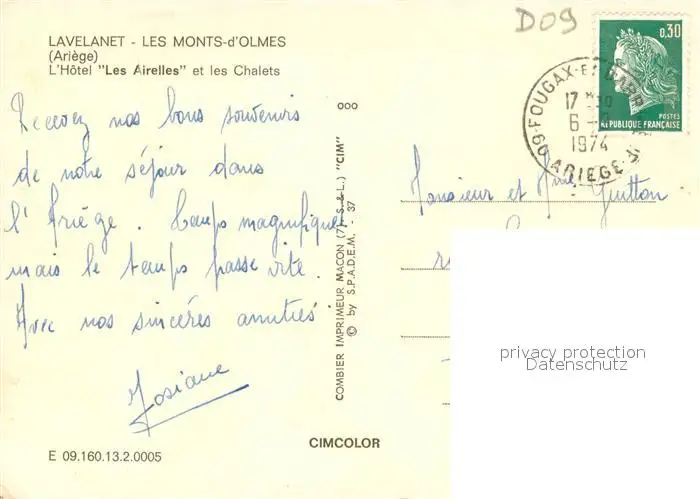 D09
LAVELANET - LES MONTS-d'OLMES
(Ariège)
L'Hôtel "Les Airelles" et les Chalets
0,30
POSTES
REPUBLIQUE FRANÇAISE
09 FOUGAX-ET-BARR
17
6
1974
ARIEGE
Recevez nos bons souvenirs
de notre séjour dans
l'Ariège. Temps magnifique
mais le temps passe vite.
Avec nos sincères amitiés
Josiane
ooo
COMBIER IMPRIMEUR MACON (71-S.&L.) "CIM"
© by S.P.A.D.E.M. - 37
Monsieur et Mme Guitton
privacy protection
Datenschutz
CIMCOLOR
E 09.160.13.2.0005